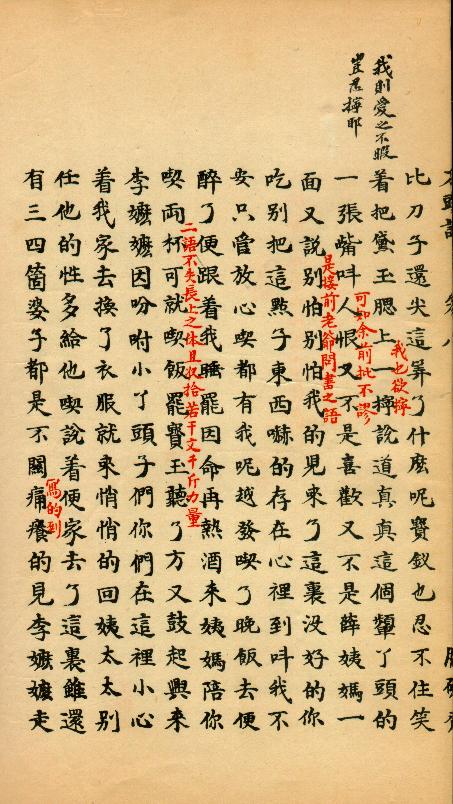 我則愛之不暇
豈忍擰耶
比刀子還尖這算了什麽呢寳釵也忍不住笑
着把黛玉腮上一擰說道真真這個顰丫頭的
我也欲擰
一張嘴呌人恨又不是喜歡又不是薛姨媽一
可知余前批不謬
面又說别怕别怕我的兒来了這裏没好的你
是接前老爺問書之語
吃别把這點子東西嚇的存在心裡到呌我不
安只管放心喫都有我呢越發喫了晚飯去便
醉了便跟着我睡罷因命再熱酒来姨媽陪你
二語不失長上之体且収拾若干文千斤力量
喫両杯可就喫飯罷寳玉聽了方又鼓起興来
李嬷嬷因吩咐小丫頭子們你們在這裡小心
着我家去换了衣服就来悄悄的回姨太太别
任他的性多給他喫說着便家去了這裏雖還
寫的到
有三四箇婆子都是不關痛癢的見李嬷嬷走